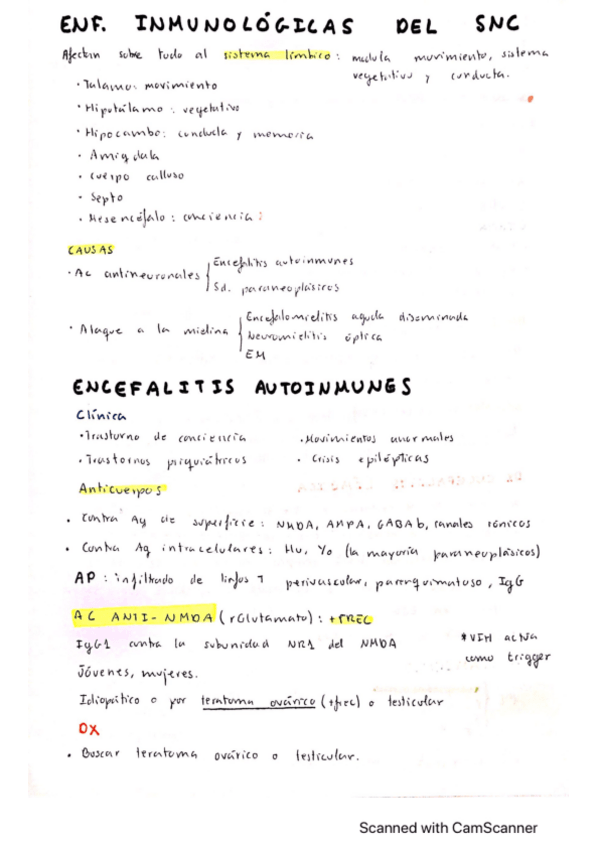 ENF. INMUNOLÓGICAS DEL SNC
Afectan sobre todo al sistema límbico: modula movimiento, sistema
vegetativo y conducta.
• Tálamo: movimiento
• Hipotálamo: vegetativo
• Hipocampo: conducta y memoria
• Amígdala
• Cuerpo calloso
• Septo
• Mesencéfalo: conciencia
CAUSAS
• Ac antineuronales
Encefalitis autoinmunes
Sd. paraneoplásicos
• Ataque a la mielina
Encefalomielitis aguda diseminada
Neuromielitis óptica
EM
ENCEFALITIS AUTOINMUNES
Clínica
• Trastorno de conciencia • Movimientos anormales
• Trastornos psiquiátricos • Crisis epilépticas
Anticuerpos
• Contra Ag de superficie: NMDA, AMPA, GABA b, canales iónicos
• Contra Ag intracelulares: Hu, Yo (la mayoría paraneoplásicos)
AP: infiltrado de linfos T perivascular, parenquimatoso, IgG
AC ANTI-NMDA (rGlutamato): +FREC
IgG1 contra la subunidad NR1 del NMDA
*VIH actúa
como trigger
Jóvenes, mujeres.
Idiopático o por teratoma ovárico (+frec) o testicular
DX
• Buscar teratoma ovárico o testicular.
Scanned with CamScanner